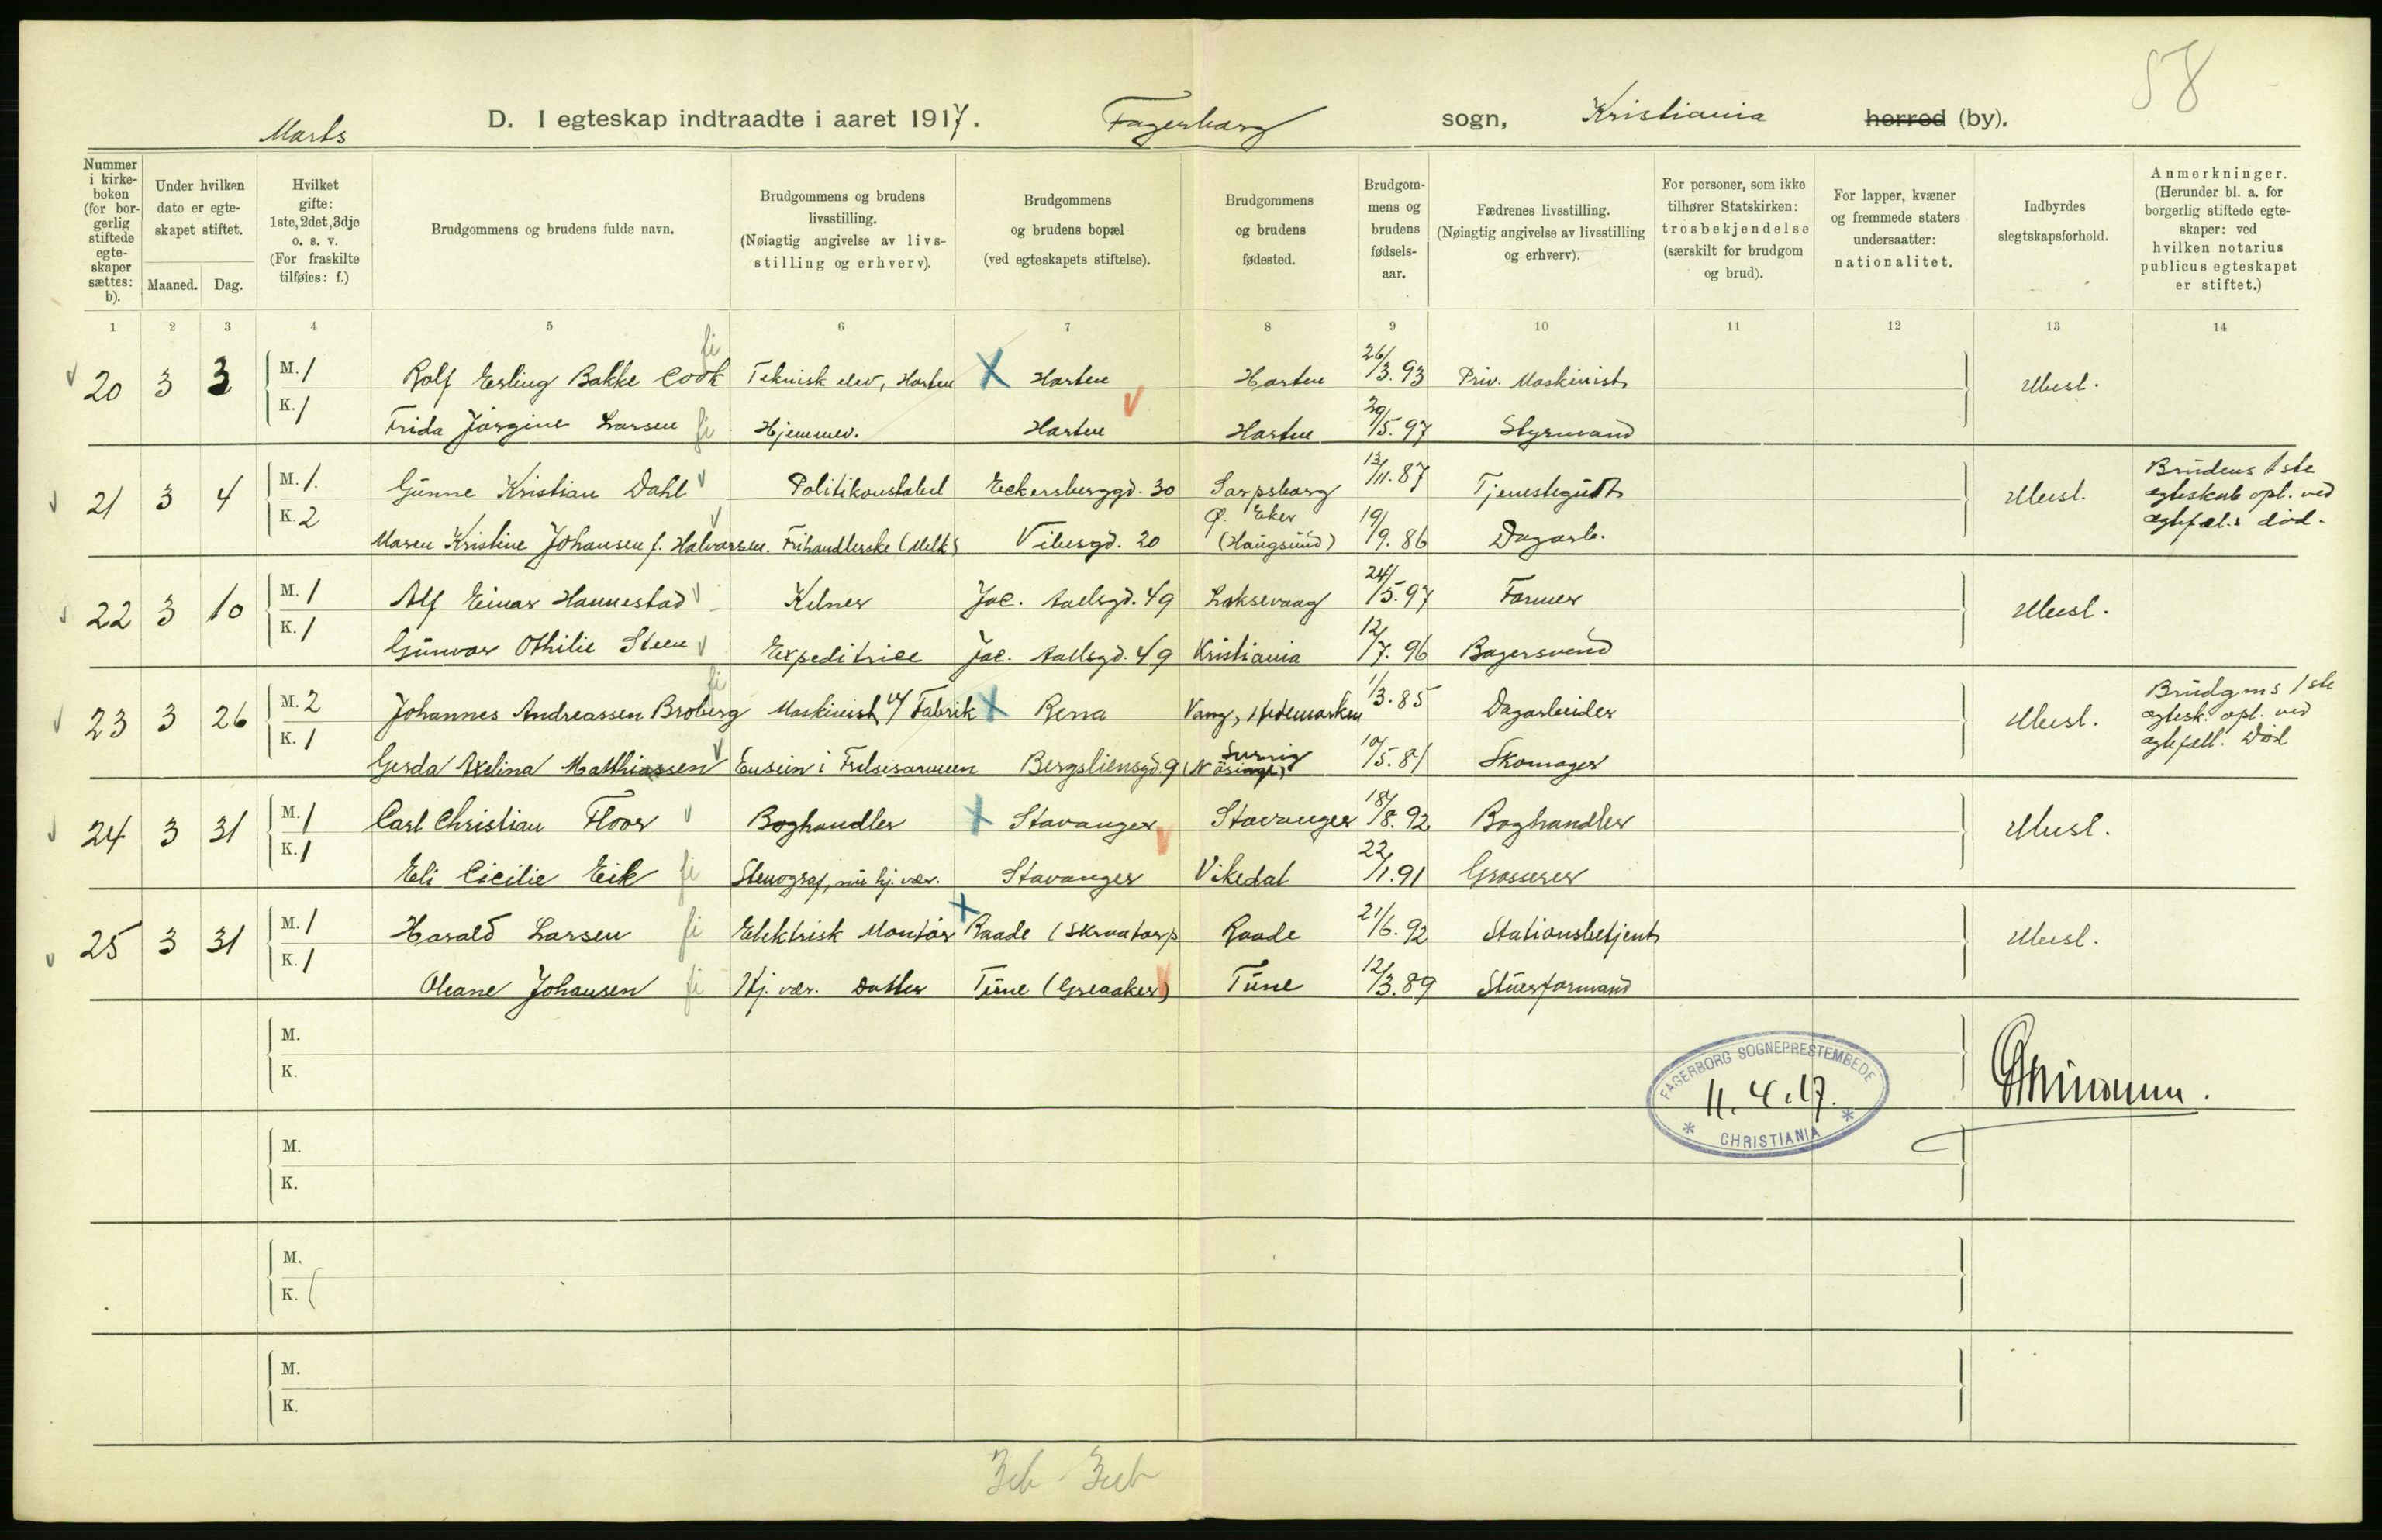 58
Marts
D. I egteskap indtraadte i aaret 1917. Fagerborg sogn, Kristiania herred (by).
Nummer i kirkeboken (for borgerlig stiftede egteskaper sættes: b).
Under hvilken dato er egteskapet stiftet.
Maaned. Dag.
Hvilket gifte: 1ste, 2det, 3dje o. s. v. (For fraskilte tilføies: f.)
Brudgommens og brudens fulde navn.
Brudgommens og brudens livsstilling. (Nøiagtig angivelse av livsstilling og erhverv).
Brudgommens og brudens bopæl (ved egteskapets stiftelse).
Brudgommens og brudens fødested.
Brudgommens og brudens fødselsaar.
Fædrenes livsstilling. (Nøiagtig angivelse av livsstilling og erhverv).
For personer, som ikke tilhører Statskirken: trosbekjendelse (særskilt for brudgom og brud).
For lapper, kvæner og fremmede staters undersaatter: nationalitet.
Indbyrdes slegtskapsforhold.
Anmerkninger. (Herunder bl. a. for borgerlig stiftede egteskaper: ved hvilken notarius publicus egteskapet er stiftet.)
1 2 3 4 5 6 7 8 9 10 11 12 13 14
20 3 3 M. 1 Rolf Erling Bakke Cook Teknisk elev, Horten X Horten Horten 26/3.93 Priv. Maskinist Ubesl.
K. 1 Frida Jörgine Larsen Hjemmev. Horten Horten 29/5.97 Styrmand
21 3 4 M. 1. Gunne Kristian Dahl Politikonstabel Eckersberggd. 30 Sarpsborg 13/11.87 Tjenestegutt Ubesl. Brudens 1ste egteskab opl. ved egtefæl.s död.
K. 2 Maren Kristine Johansen f. Halvorsen. Frihandlerske (Melk) Vibesgd. 20 Ø. Eker (Haugsund) 19/9.86 Dagarb.
22 3 10 M. 1 Alf Einar Hannestad Kelner Jac. Aallsgd. 49 Laksevaag 24/5.97 Former Ubesl.
K. 1 Gunvor Othilie Steen Expeditrice Jac. Aallsgd. 49 Kristiania 12/7.96 Bagersvend
23 3 26 M. 2 Johannes Andreassen Broberg Maskinist v/ Fabrik X Rena Vang, Hedemarken 1/3.85 Dagarbeider Ubesl. Brudgms 1ste egtesk. opl. ved egtefæll. Död
K. 1 Gerda Axelina Matthiassen Ensein i Frelsesarmeen Bergsliensgd. 9 10/5.81 Skomager
24 3 31 M. 1 Carl Christian Floor Boghandler X Stavanger Stavanger 18/8.92 Boghandler Ubesl.
K. 1 Eli Cicilie Eik Stenograf, nu hj. vær. Stavanger Vikedal 22/1.91 Grosserer
25 3 31 M. 1 Harald Larsen Elektrisk Montör X Raade (Skraatorp Raade 21/6.92 Stationsbetjent Ubesl.
K. 1 Oleane Johansen Hj. vær. Datter Tune (Greaaker) Tune 12/3.89 Stuerformand
M.
K.
FAGERBORG SOGNEPRESTEMBEDE
11.4.17.
* CHRISTIANIA *
M.
K.
M.
K.
M.
K.